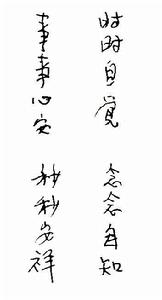 时时自觉
念念自知
事事心安
秒秒安祥